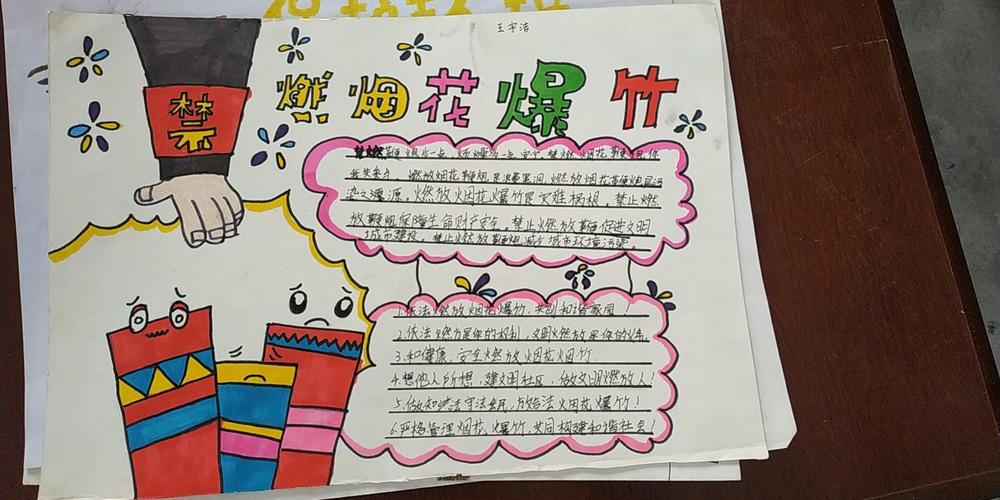 王宇洁
禁
燃烟花爆竹
禁燃鞭炮少一点，
我失参与，燃放烟花鞭炮是浪费黑洞，燃放烟花鞭炮是污
染之源源，燃放烟花爆竹是灾难祸根，禁止燃
放鞭炮保障生命财产安全，禁止燃放鞭促进文明
城市建设，禁止燃放鞭炮减少城市环境污染。
1.依法燃放烟花爆竹，共创和谐家园！
2.依法燃放是你的权利，文明燃放是你的义务.
3.和健康，安全燃放烟花烟竹.
4.想他人所想，建文明社区，做文明燃放人！
5.做知法守法，烟花爆竹！
6.严格管理烟花爆竹，共同构建和谐社会！